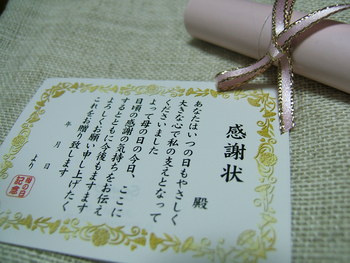 感謝状
殿
あなたはいつの日もやさしく
大きな心で私の支えとなって
くださいました
よって母の日の今日、ここに
日頃の感謝の気持ちをお伝え
するとともに今後もますます
よろしくお願い申し上げたく
これをお贈り致します
年 月 日
より
母の日
記念